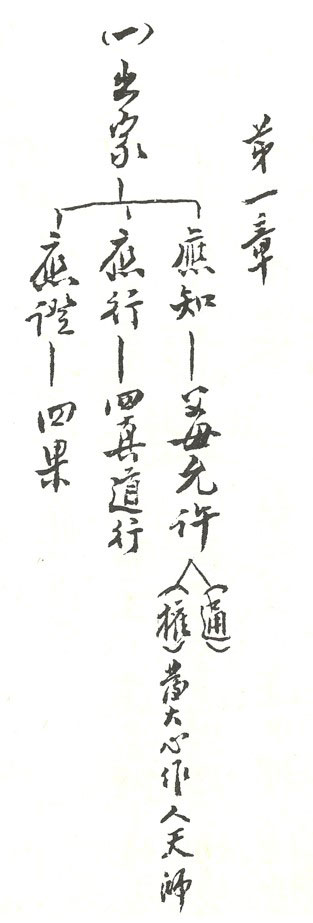 第一章
(一)出家
應知—父母允許
(通)
(權)發大心作人天師
應行—四真道行
應證—四果